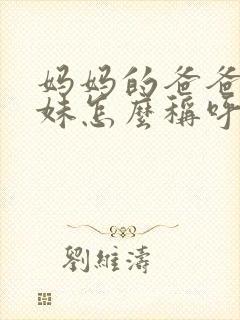 妈妈的爸爸
妹怎麼稱呼
劉維濤